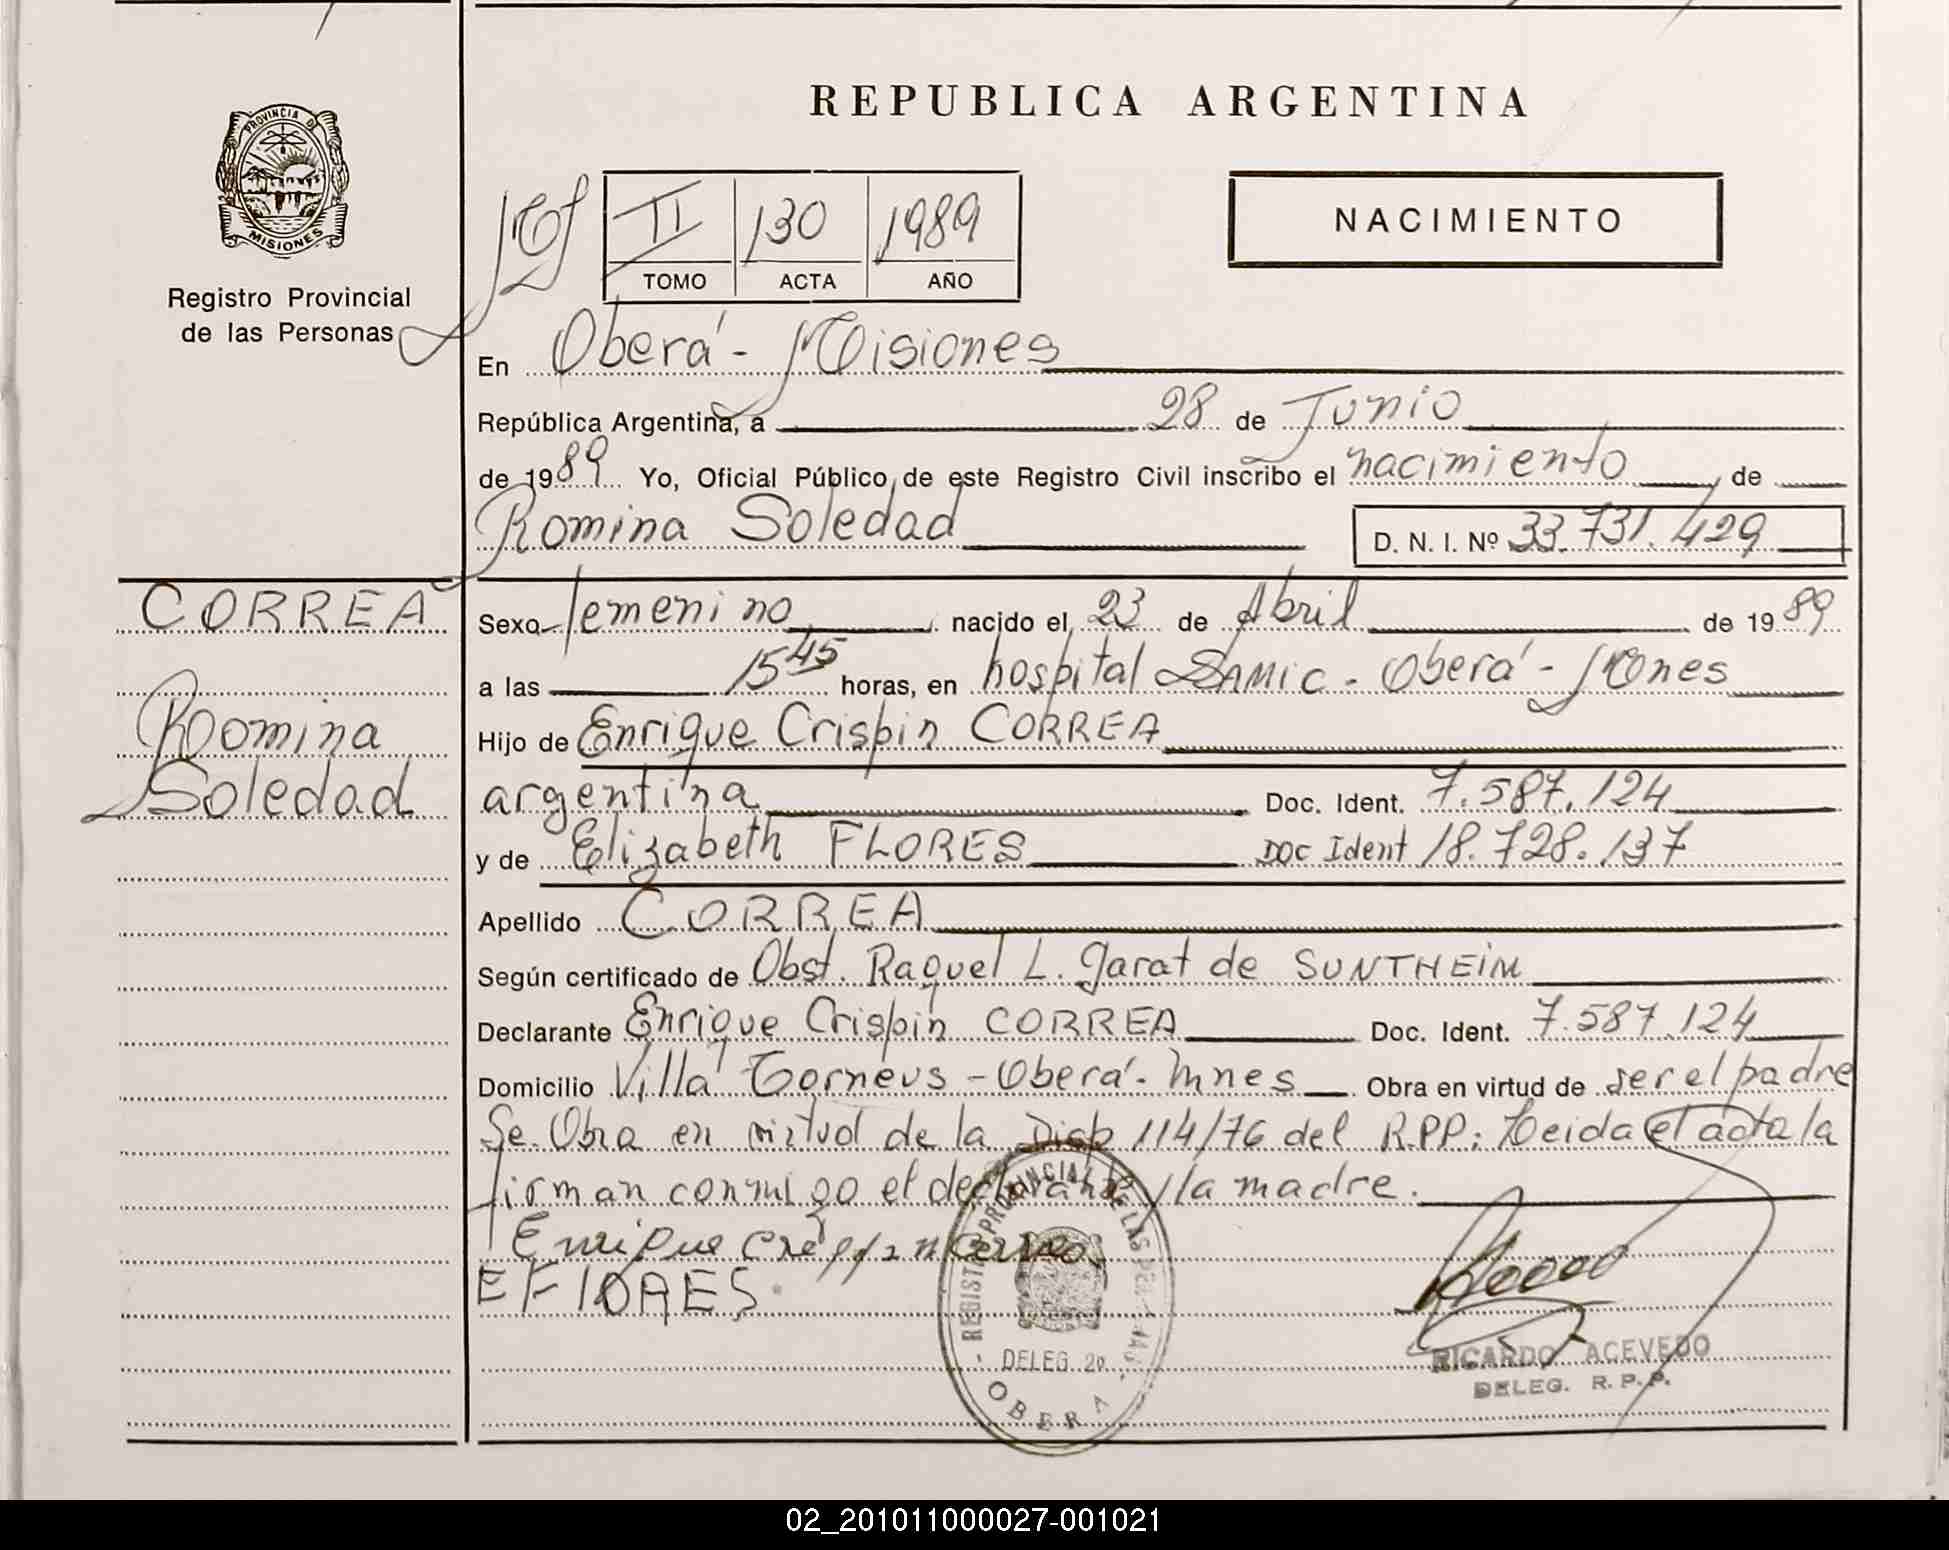 REPUBLICA ARGENTINA
PROVINCIA DE
MISIONES
Registro Provincial
de las Personas
II 130 1989
TOMO ACTA AÑO
NACIMIENTO
En Oberá - Misiones
República Argentina, a 28 de Junio
de 1989 Yo, Oficial Público de este Registro Civil inscribo el nacimiento de
Romina Soledad D. N. I. Nº 33.731.429
CORREA
Romina
Soledad
Sexo femenino nacido el 23 de Abril de 1989
a las 15 45 horas, en hospital SAMIC - Oberá - Mones
Hijo de Enrique Crispin CORREA
argentina Doc. Ident. 7.587.124
y de Elizabeth FLORES Doc Ident 18.728.137
Apellido CORREA
Según certificado de Obst. Raquel L. Garat de SUNTHEIM
Declarante Enrique Crispin CORREA Doc. Ident. 7.587.124
Domicilio Villa Torneus - Oberá - Mnes Obra en virtud de ser el padre
Se Obra en virtud de la Disp 114/76 del R.P.P; Leida el acta la
firman conmigo el declarante y la madre.
Enrique
E FlORES
REGISTRO PROVINCIAL DE LAS PERSONAS
DELEG. 2a.
OBERA
RICARDO ACEVEDO
DELEG. R. P. P.
02_201011000027-001021